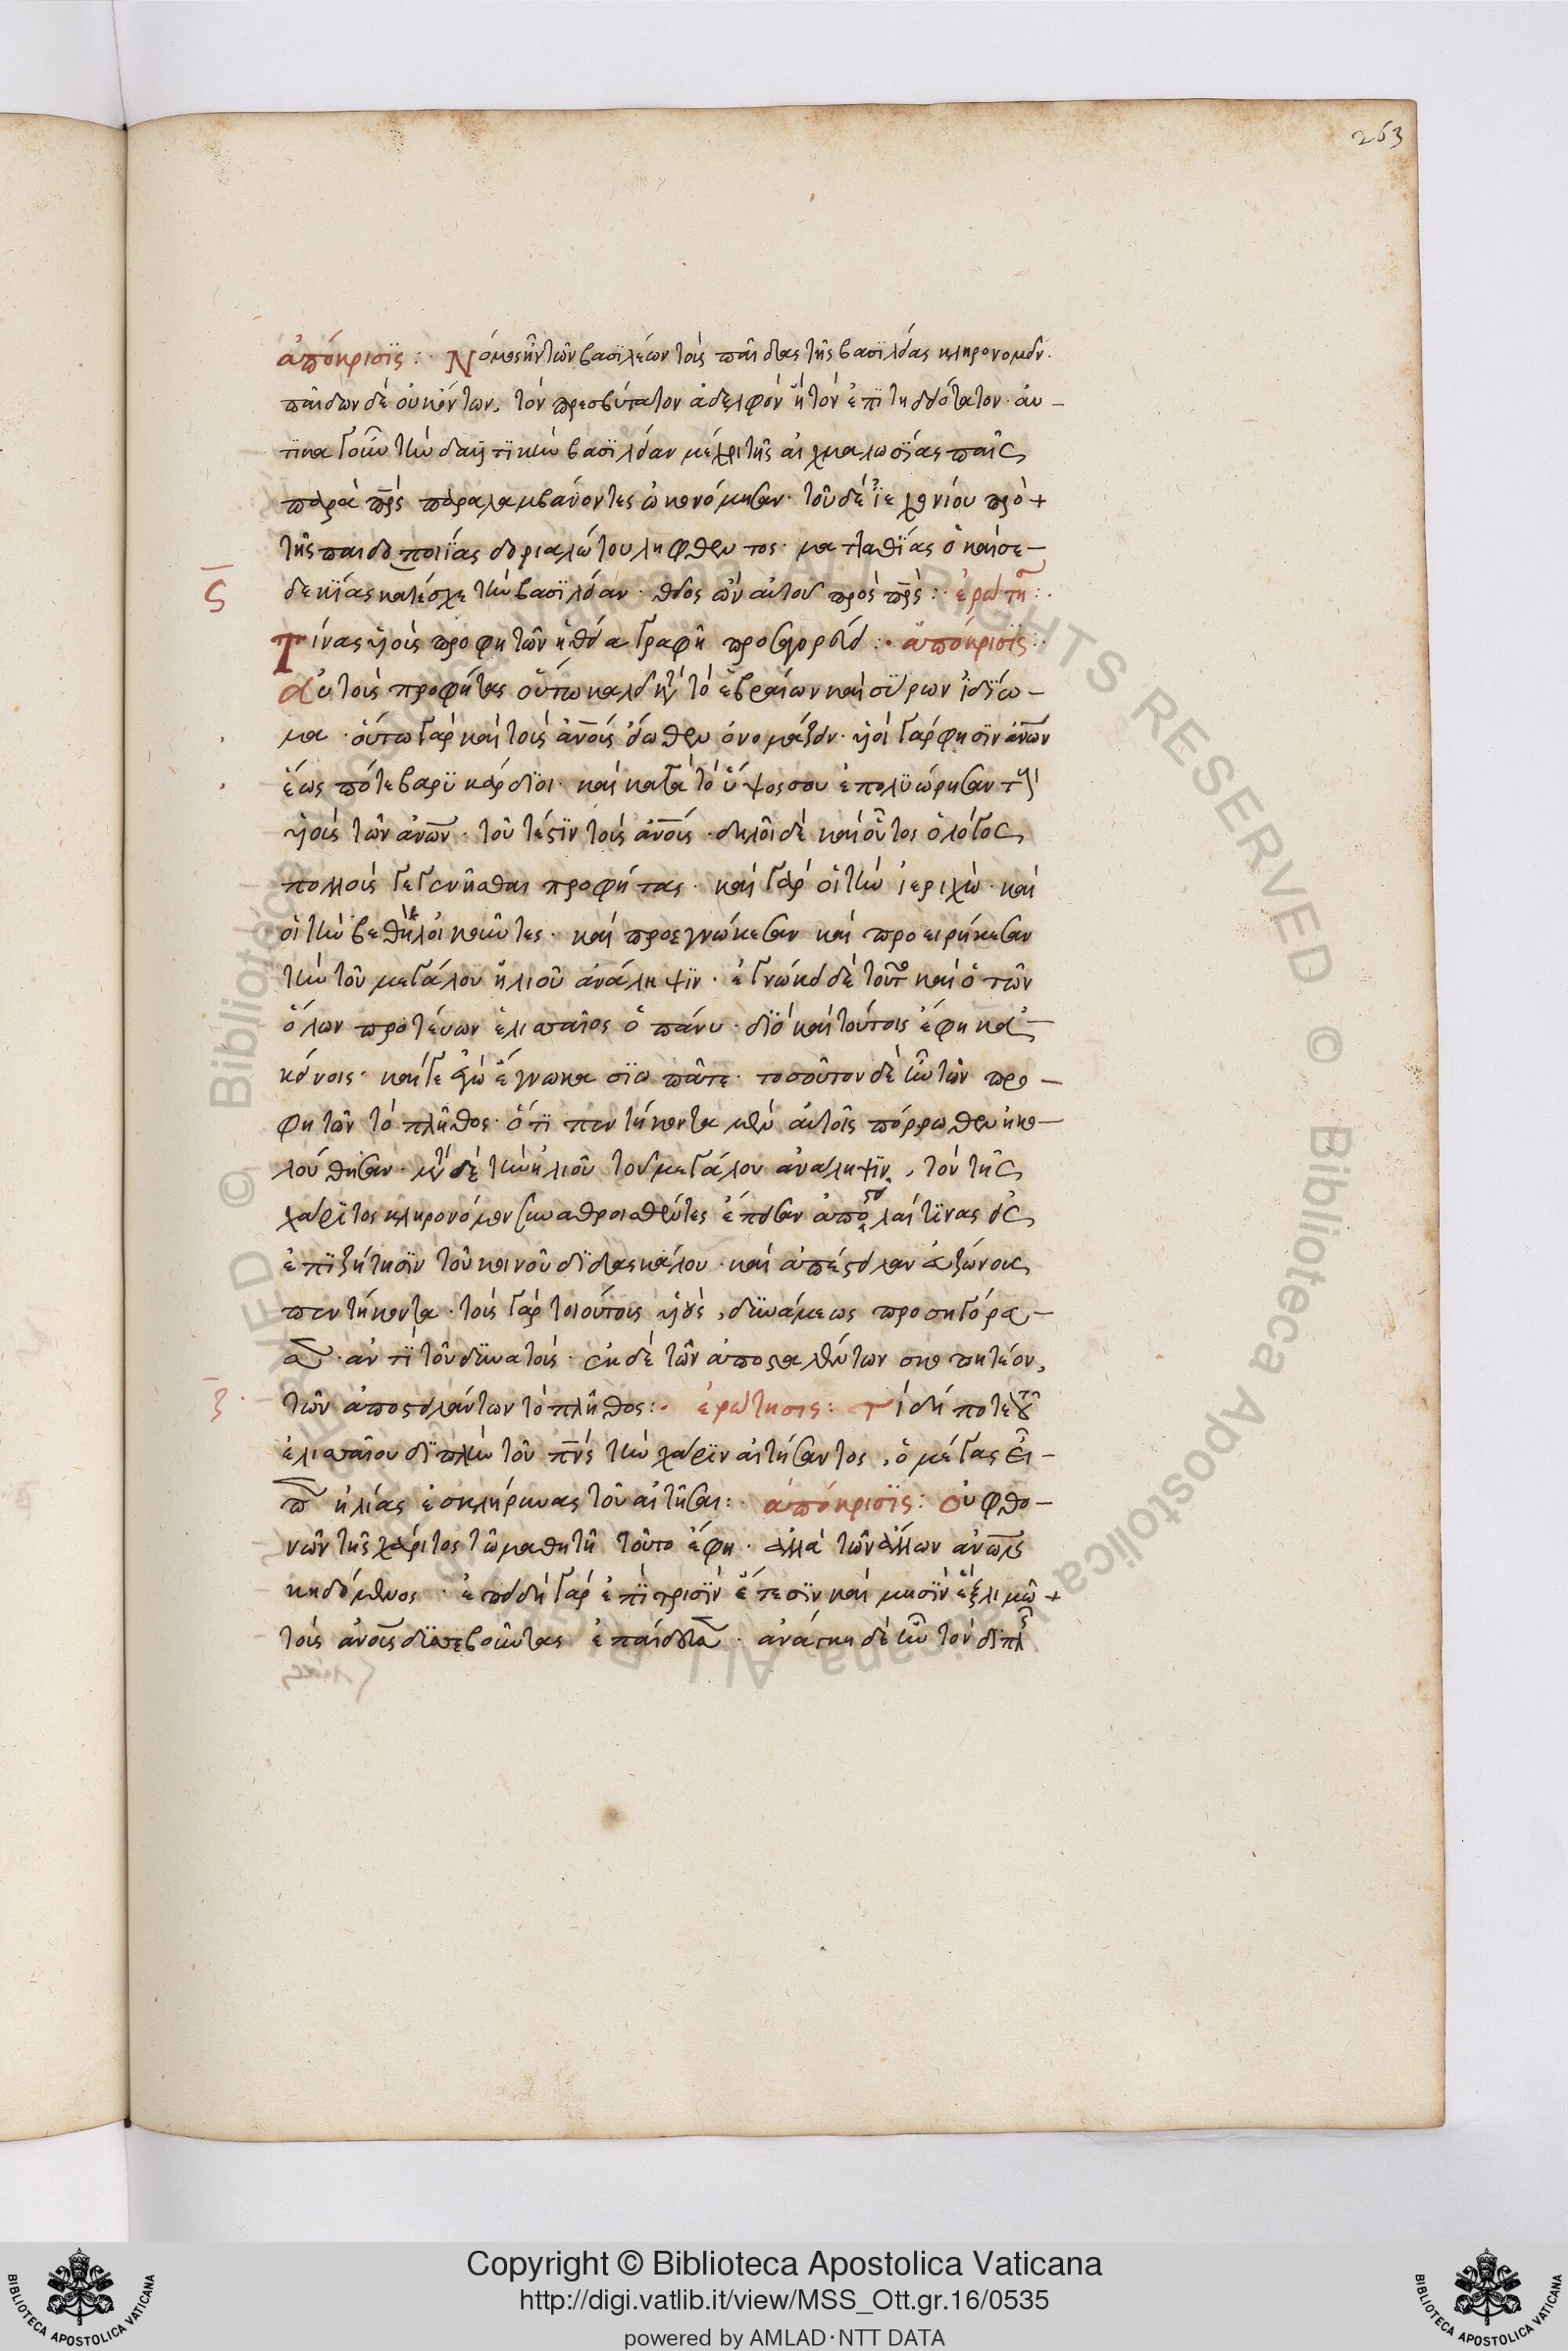 263
ἀπόκρισϊς: Νόμος ἦν τῶν βασϊλέων τοὺς παῖδας τῆς βασϊλείας κληρονομεῖν·
παίδων δὲ οὐκ ὄντων, τὸν πρεσβύτατον ἀδελφὸν ἢ τὸν ἐπϊτηδειότατον· αὐ-
τϊκα γοῦν τὴν δαυϊτϊκὴν βασϊλείαν μέχρι τῆς αἰχμαλωσΐας παῖς
παρὰ πρς παραλαμβάνοντες ὠκονόμησαν· τοῦ δὲ ϊεχονίου πρὸ +
τῆς παιδοποιΐας δοριαλώτου ληφθέντος· ματταθΐας ὁ καὶ σε-
ς δεκΐας κατέσχε τὴν βασϊλείαν· θεῖος ὢν αὐτοῦ πρὸς πρς: ἐρώτη:
Τίνας υἱοὺς προφητῶν ἡ θεία γραφὴ προσαγορεύει: ἀπόκρισϊς:
αὐτοὺς προφήτας οὕτω καλεῖν τὸ ἑβραίων καὶ σύρων ἰδΐω-
μα· οὕτω γὰρ καὶ τοὺς ἀνους εἴωθεν ὀνομάζειν· υἱοὶ γάρ φησϊν ἀνων
ἕως πότε βαρϋκάρδϊοι· καὶ κατὰ τὸ ὕψος σου ἐπολϋώρησαν τοὺς
υἱοὺς τῶν ἀνων· τοῦτέςϊν τοὺς ἀνους· δηλοῖ δὲ καὶ οὗτος ὁ λόγος
πολλοὺς γεγενῆσθαι προφήτας· καὶ γὰρ οἱ τὴν ἱεριχὼ· καὶ
οἱ τὴν βεθὴλ οἰκοῦντες· καὶ προεγνώκεσαν καὶ προειρήκεσαν
τὴν τοῦ μεγάλου ἡλιοῦ ἀνάληψϊν· ἐγνώκει δὲ τοῦτο καὶ ὁ τῶν
ὅλων προτεύων ἑλισσαῖος ὁ πάνυ· δϊὸ καὶ τούτοις ἔφη κα-
κείνοις· καί γε ἐγὼ ἔγνωκα σϊωπᾶτε· τοσοῦτον δὲ ἦν τῶν προ-
φητῶν τὸ πλῆθος· ὅτϊ πεντήκοντα μὲν αὐτοῖς πόρρωθεν ἠκο-
λούθησαν· μετὰ δὲ τὴν ἡλιοῦ τοῦ μεγάλου ἀναληψϊν, τὸν τῆς
χάρϊτος κληρονόμον συναθροισθέντες ἔπεισαν ἀποςεῖλαί τϊνας εἰς
ἐπϊζήτησϊν τοῦ κοινοῦ δϊδασκάλου· καὶ ἀπέςειλαν εὐζώνους
πεντήκοντα· τοὺς γὰρ τοιούτους υἱοὺς, δϋνάμεως προσηγόρευ-
σεν· ἀντϊ τοῦ δϋνατούς· ἐκ δὲ τῶν ἀποςαλέντων σκοπητέον,
ζ τῶν ἀποςειλάντων τὸ πλῆθος: ἐρώτησις: τί δήποτε τοῦ
ἑλισσαίου δϊπλὴν τοῦ πνς τὴν χάρϊν αἰτήσαντος, ὁ μέγας εἶ-
πεν ἡλίας ἐσκλήρυνας τοῦ αἰτῆσαι: ἀπόκρισϊς: οὐ φθο-
νῶν τῆς χάριτος τῷ μαθητῇ τοῦτο ἔφη· ἀλλὰ τῶν ἄλλων ἀνων
κηδόμενος· ἐπειδὴ γὰρ ἐπϊ τρισϊν ἔτεσϊν καὶ μησϊν ἓξ λιμῶ +
τοὺς ἀνους δϋσσεβοῦντας ἐπαίδευσεν· ἀνάγκη δὲ ἦν τὸν δϊπλ